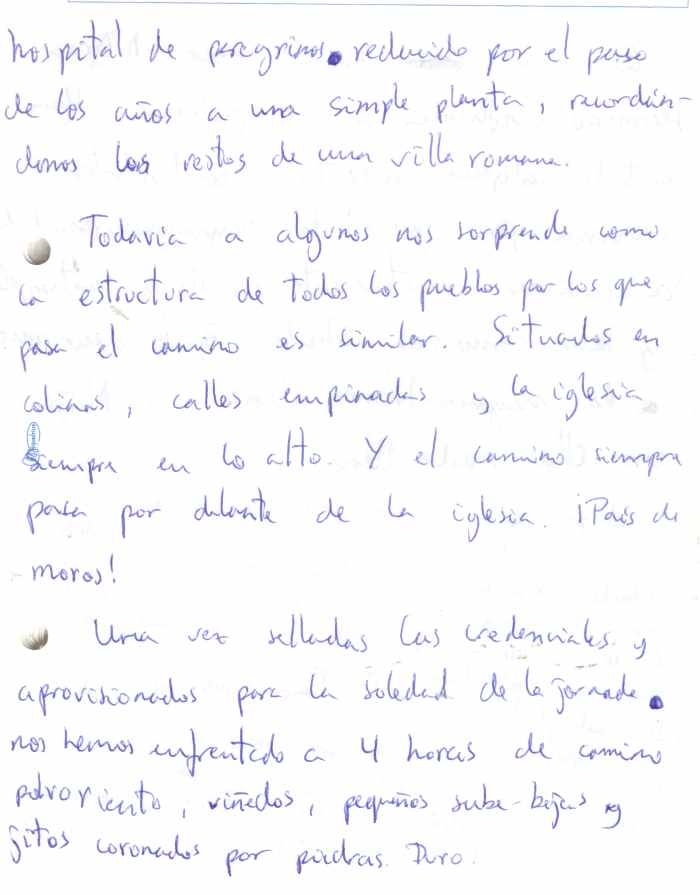 hospital de peregrinos reducido por el paso
de los años a una simple planta, recordán-
donos los restos de una villa romana.
Todavía a algunos nos sorprende como
la estructura de todos los pueblos por los que
pasa el camino es similar. Situados en
colinas, calles empinadas y la iglesia
siempre en lo alto. Y el camino siempre
pasa por delante de la iglesia. ¡País de
moros!
Una vez selladas las credenciales y
aprovisionados para la soledad de la jornada
nos hemos enfrentado a 4 horas de camino
polvoriento, viñedos, pequeños sube-bajas y
jitos coronados por piedras. Duro.